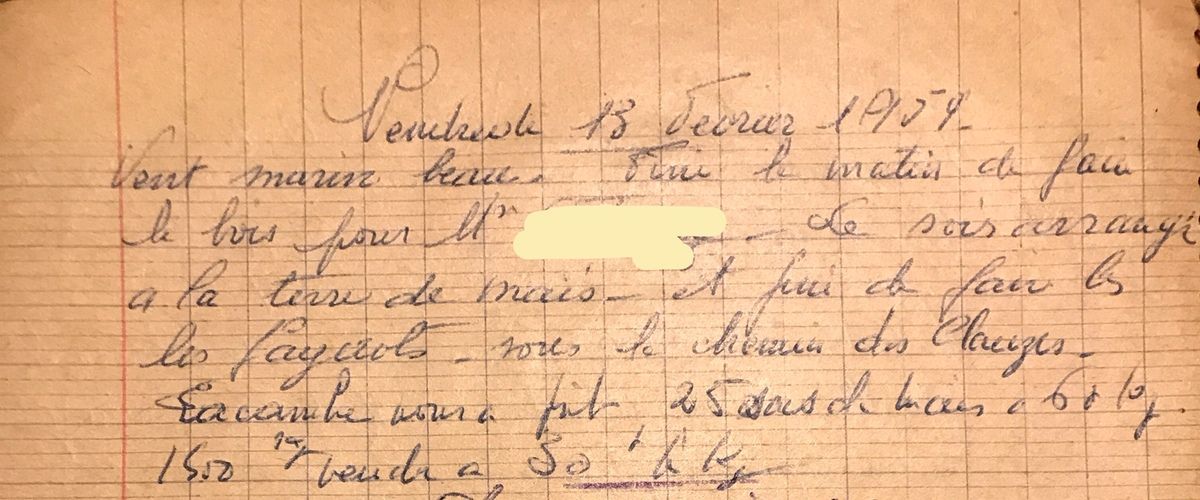 Vendredi 13 Fevrier 1959
Vent marin beau. Fini le matin de faire
le bois pour Mr Le soir arrangé
a la terre de mais - et fini de faire les
les fagots - sous le chemin des Clauzes -
nous a pris 25 sacs de mais a 60 kg
1500 kg vendu a 30 f le kg